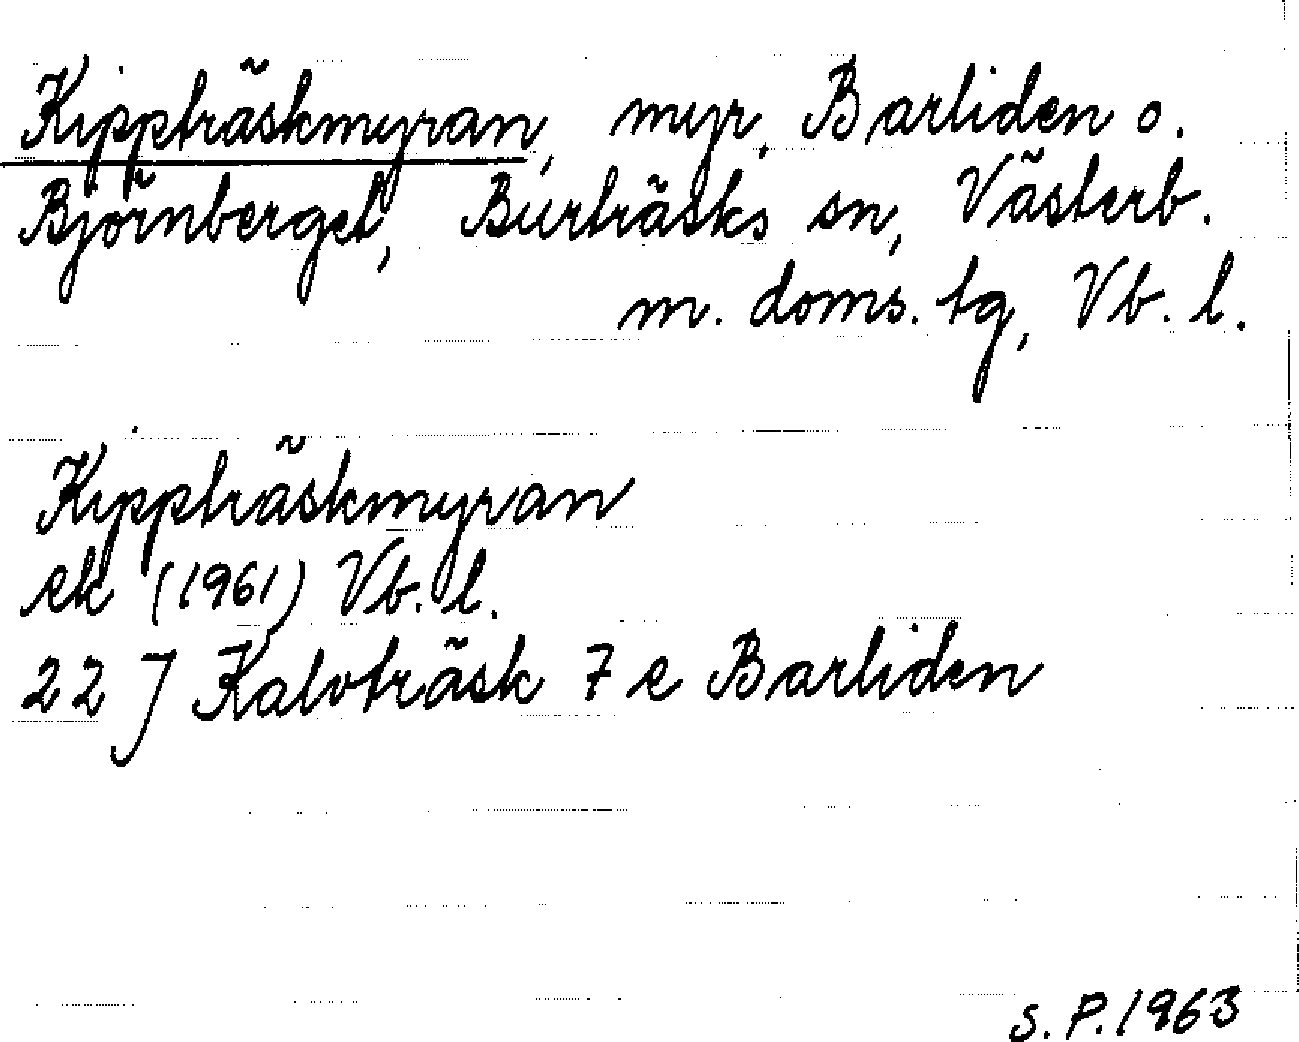 Kippträskmyran, myr, Barliden o.
Björnberget, Burträsks sn, Västerb.
m. doms. tg, Vb. l.
Kippträskmyran
ek (1961) Vb. l.
22 J Kalvträsk 7 e Barliden
S. P. 1963